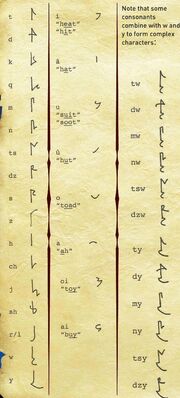 t
d
k
q
m
n
ts
dz
s
z
h
ch
j
sh
r/l
w
y
i
"heat"
"hit"
â
"hat"
u
"suit"
"soot"
û
"hut"
o
"toad"
a
"ah"
oi
"toy"
ai
"buy"
Note that some
consonants
combine with w and
y to form complex
characters:
tw
dw
mw
nw
tsw
dzw
ty
dy
my
ny
tsy
dzy